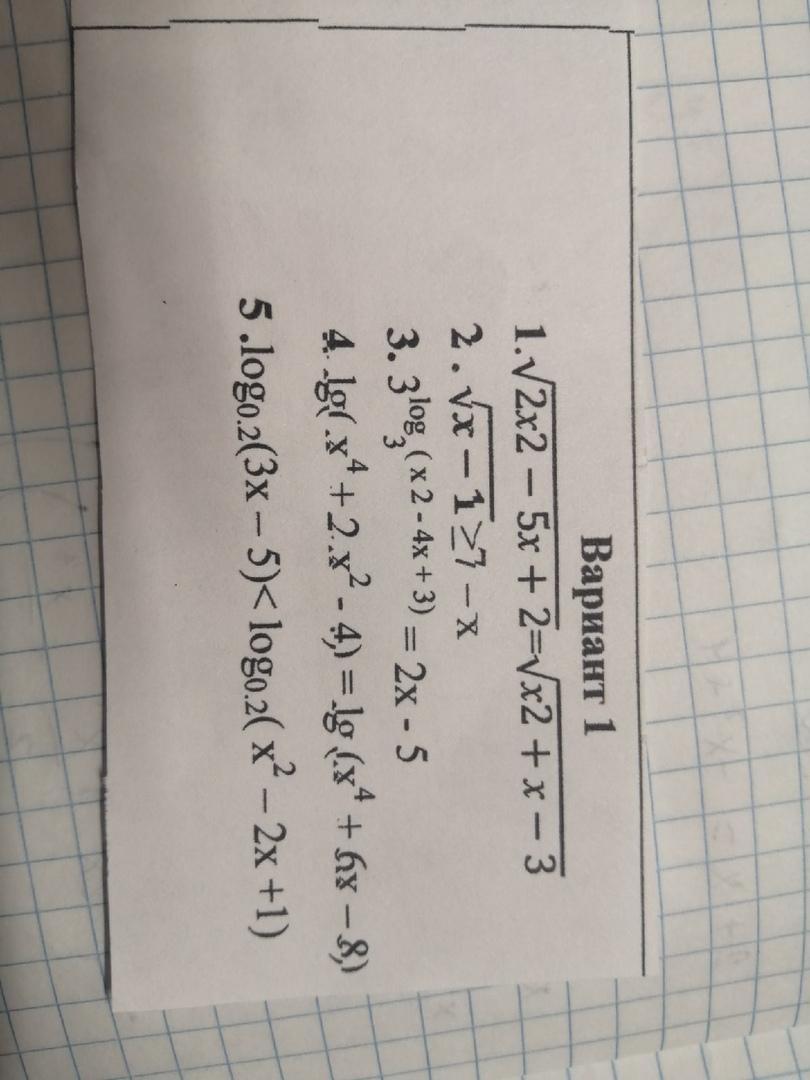 Вариант 1
1.√2x2 − 5x + 2=√x2 + x − 3
2 . √x − 1≥7 − x
3. 3^log₃(x2 - 4x + 3) = 2x - 5
4. lg( x⁴ + 2 x² - 4) = lg (x⁴ + 6x − 8)
5 .log₀.₂(3x − 5)< log₀.₂( x² − 2x +1)